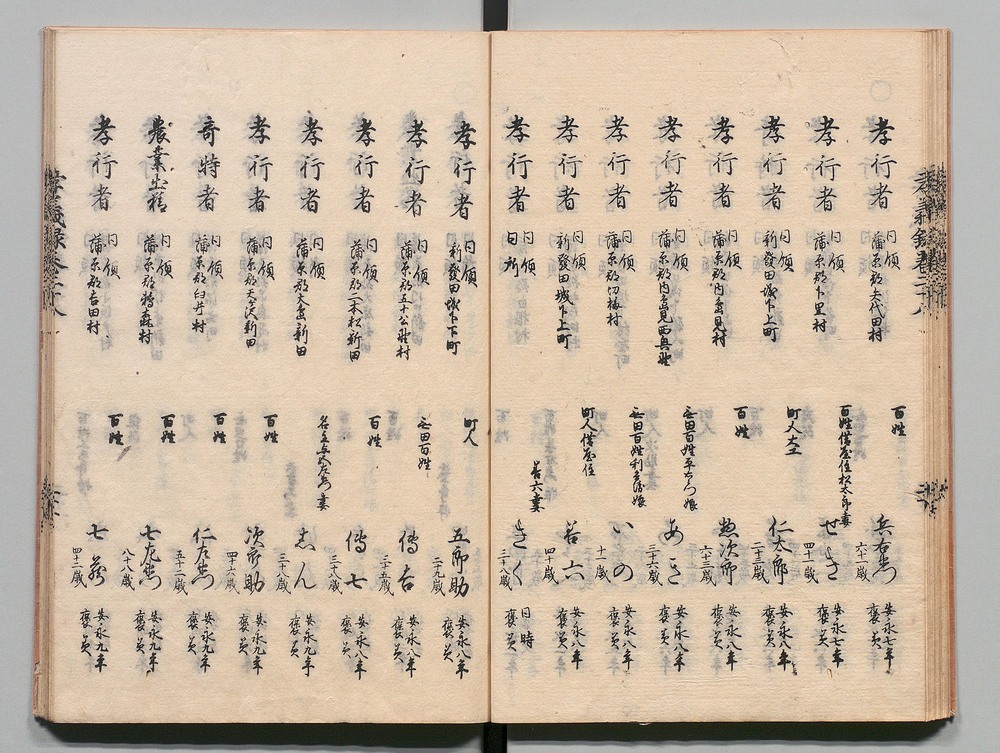 孝行者
同領
蒲原郡矢代田村
百姓
兵右衛門
六十歳
安永七年
褒美
孝行者
同領
蒲原郡下里村
百姓借屋住松太郎妻
せき
四十二歳
安永七年
褒美
孝行者
同領
新發田城下上町
町人大工
仁太郎
二十三歳
安永八年
褒美
孝行者
同領
蒲原郡内島見村
百姓
惣次郎
六十三歳
安永八年
褒美
孝行者
同領
蒲原郡内島見西興野
無田百姓平右衛門娘
あき
三十六歳
安永八年
褒美
孝行者
同領
蒲原郡切梅村
無田百姓利兵衛娘
いの
十一歳
安永八年
褒美
孝行者
同領
新發田城下上町
町人借屋住
善六
四十歳
安永八年
褒美
孝行者
同領
同所
善六妻
きく
三十八歳
同時
褒美
孝行者
同領
新發田城下下町
町人
五郎助
二十九歳
安永八年
褒美
孝行者
同領
蒲原郡五十公野村
無田百姓
傳吉
三十五歳
安永八年
褒美
孝行者
同領
蒲原郡二本松新田
百姓
傳七
三十八歳
安永八年
褒美
孝行者
同領
蒲原郡大島新田
名主与五左衛門妻
志ん
三十歳
安永九年
褒美
孝行者
同領
蒲原郡天ケ沢新田
百姓
次郎助
四十六歳
安永九年
褒美
奇特者
同領
蒲原郡臼井村
百姓
仁左衛門
五十二歳
安永九年
褒美
農業出精
同領
蒲原郡鷲森村
百姓
七左衛門
八十八歳
安永九年
褒美
孝行者
同領
蒲原郡吉田村
百姓
七蔵
四十二歳
安永九年
褒美
孝義録巻二十八